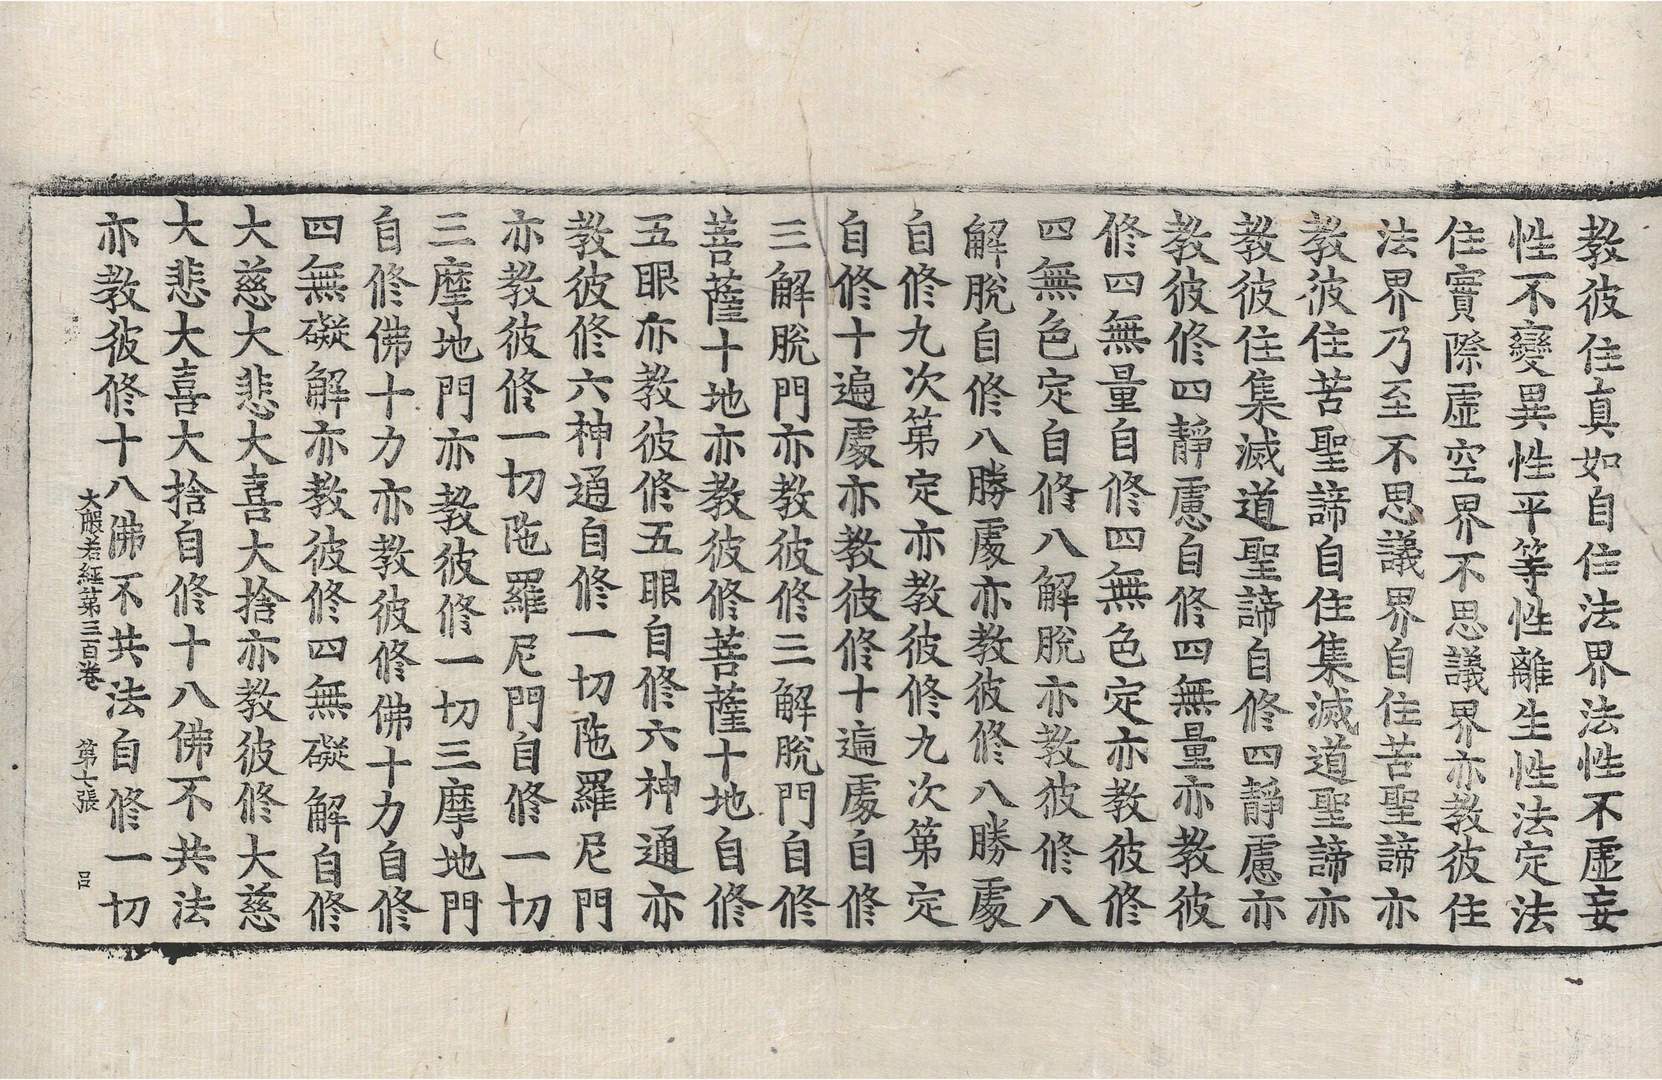 教彼住真如自住法界法性不虛妄
性不變異性平等性離生性法定法
住實際虛空界不思議界亦教彼住
法界乃至不思議界自住苦聖諦亦
教彼住苦聖諦自住集滅道聖諦亦
教彼住集滅道聖諦自修四靜慮亦
教彼修四靜慮自修四無量亦教彼
修四無量自修四無色定亦教彼修
四無色定自修八解脫亦教彼修八
解脫自修八勝處亦教彼修八勝處
自修九次第定亦教彼修九次第定
自修十遍處亦教彼修十遍處自修
三解脫門亦教彼修三解脫門自修
菩薩十地亦教彼修菩薩十地自修
五眼亦教彼修五眼自修六神通亦
教彼修六神通自修一切陁羅尼門
亦教彼修一切陁羅尼門自修一切
三摩地門亦教彼修一切三摩地門
自修佛十力亦教彼修佛十力自修
四無礙解亦教彼修四無礙解自修
大慈大悲大喜大捨亦教彼修大慈
大悲大喜大捨自修十八佛不共法
亦教彼修十八佛不共法自修一切
大般若經第三百卷 第七張 呂